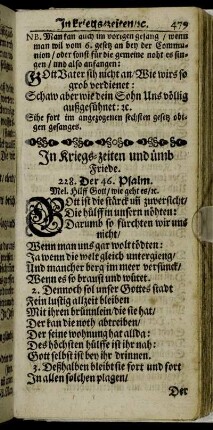 In Kriegs-zeiten/ꝛc. 479
NB. Man kan auch im vorigen gesang / wenn
man wil vom 6. gesetz an bey der Commu-
nion / oder sonst für die gemeine noht es sin-
gen / und also anfangen:
GOtt Vater sih nicht an/ Wie wirs so
grob verdienet:
Schaw aber wie dein Sohn Uns völlig
außgesühnet: ꝛc.
Sihe fort im angezogenen sechsten gesetz obi-
gen gesanges.
In Kriegs-zeiten und umb
Friede.
228. Der 46. Psalm.
Mel. Hilff Gott/ wie geht es/ꝛc.
GOtt ist die stärck uñ zuversicht/
Die hülff in unsern nöhten:
Darumb so fürchten wir uns
nicht/
Wenn man uns gar wolt tödten:
Ja wenn die welt gleich untergieng/
Und mancher berg im meer versünck/
Wenn es so braust und wütet.
2. Dennoch sol unser Gottes stadt
Fein lustig allzeit bleiben
Mit ihren brünnlein/ die sie hat/
Der kan die noth abtreiben/
Der seine wohnung hat allda:
Des höchsten hülffe ist ihr nah:
Gott selbst ist bey ihr drinnen.
3. Deßhalben bleibt sie fort und fort
In allen solchen plagen/
Der